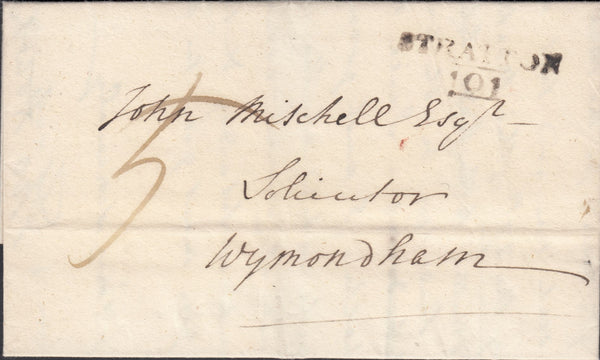 STRATTON
101
John Mitchell Esqr
5
Solicitor
Wymondham